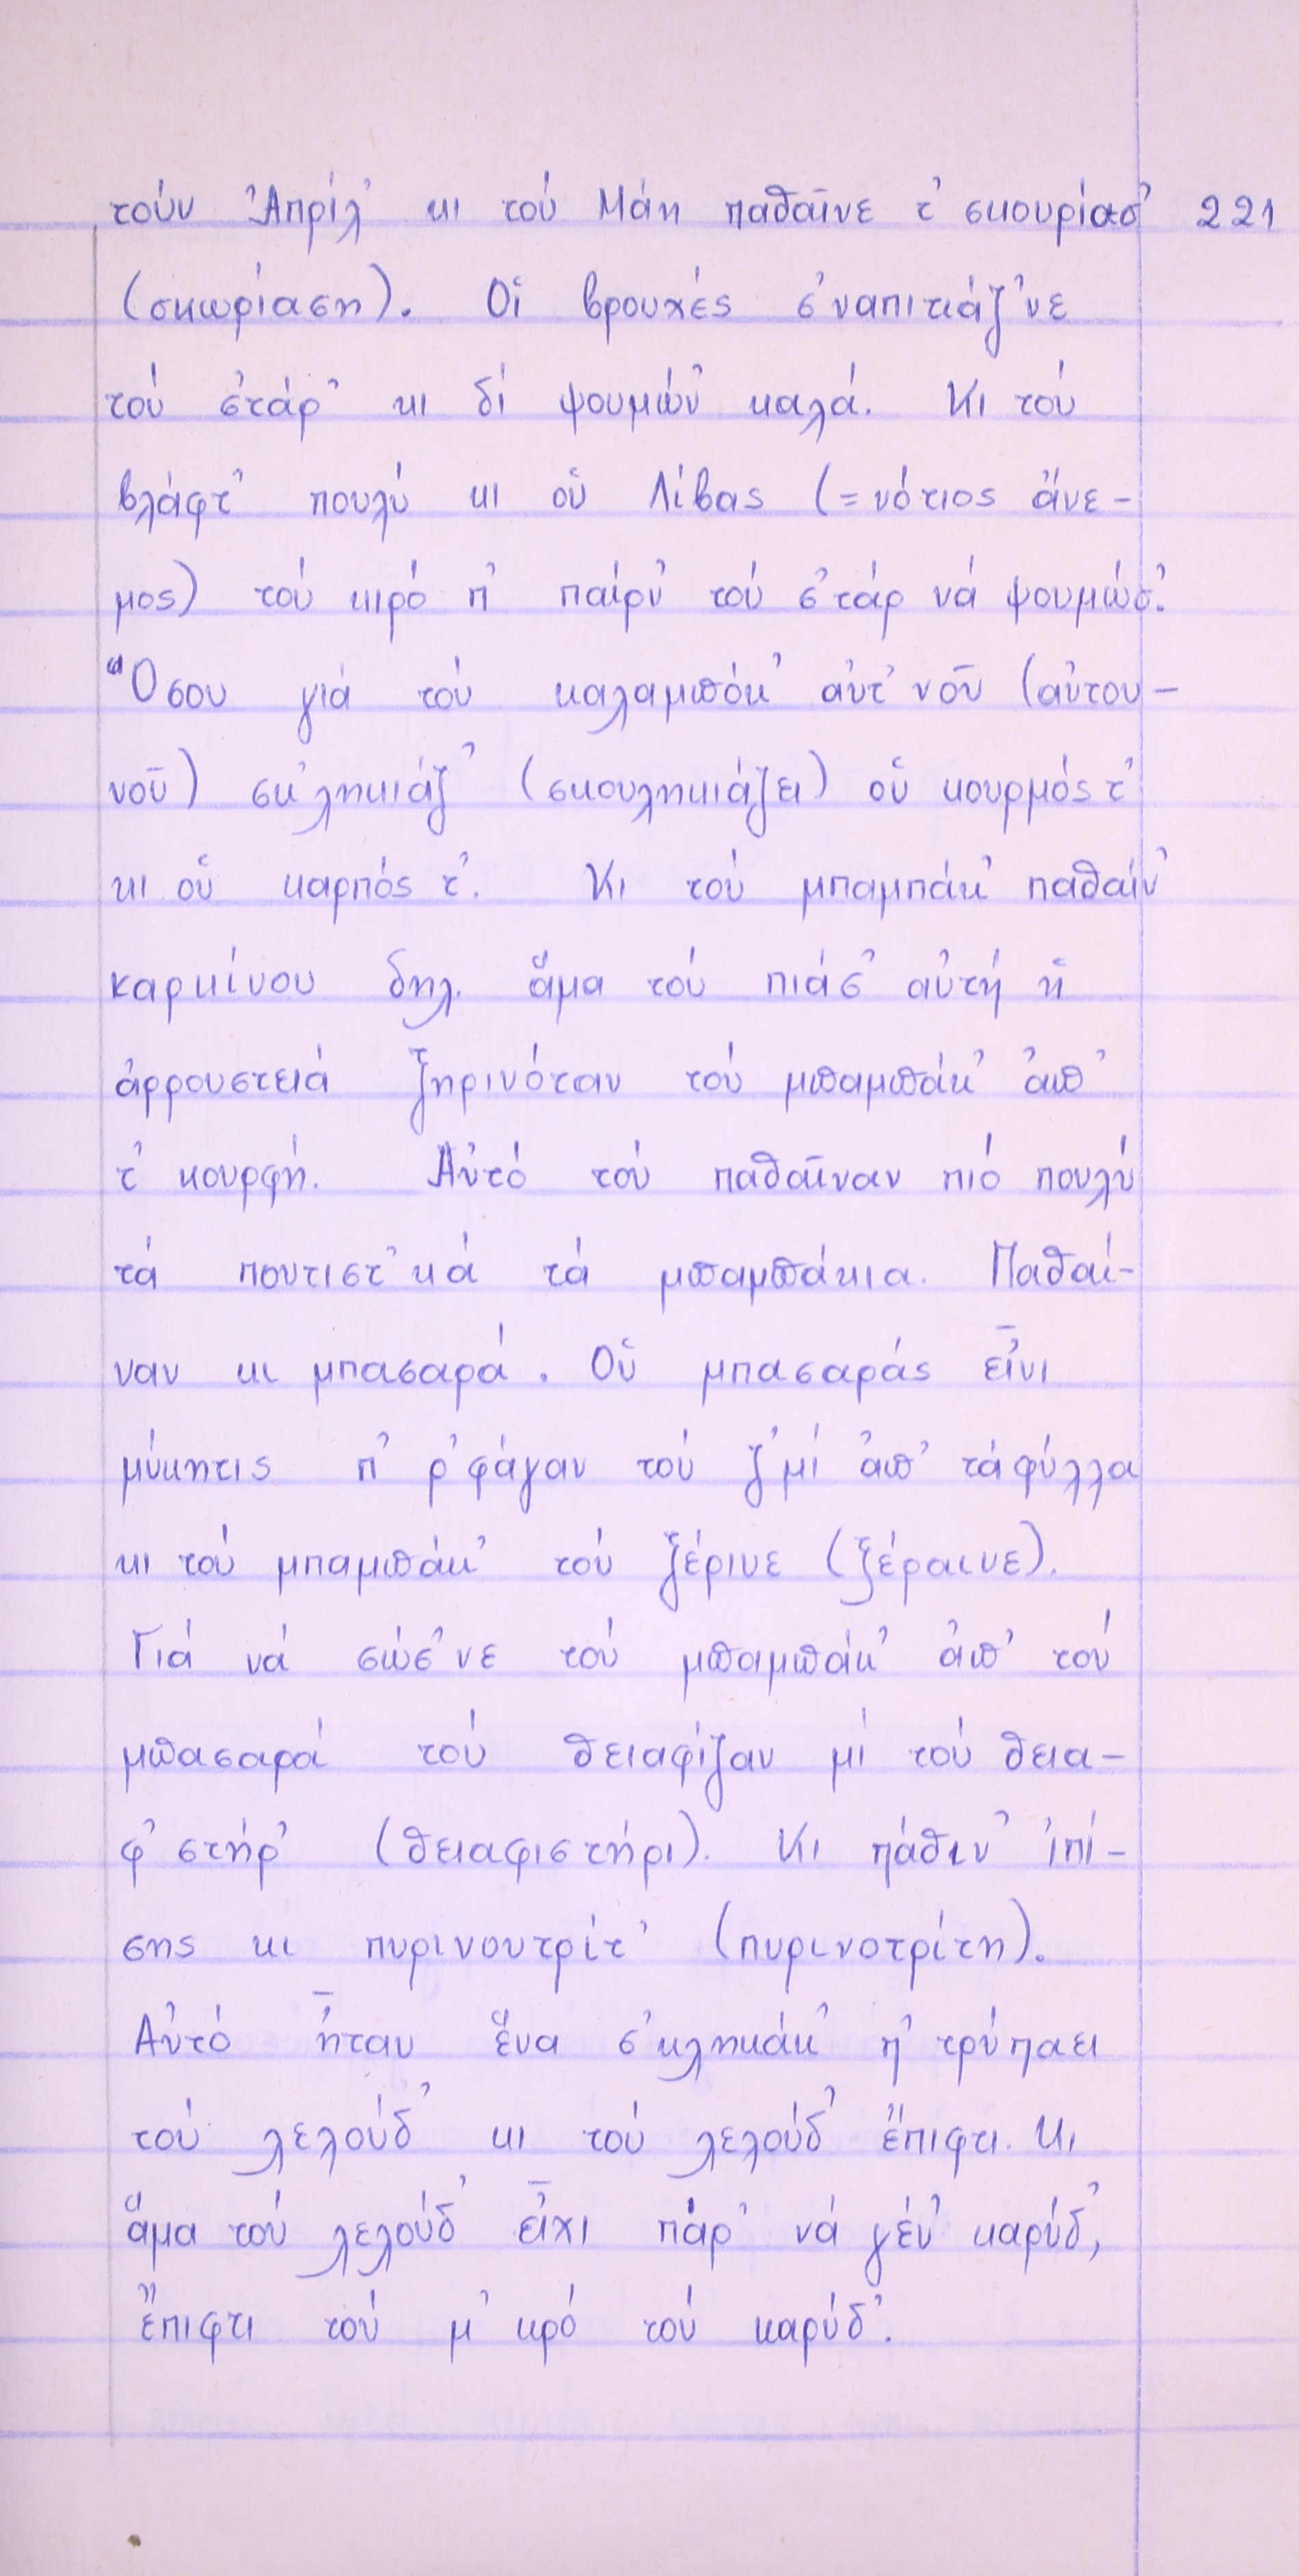 τούν Ἀπρίλ' κι τού Μάη παθαῖνε τ' σκουρίασ' 221
(σκωρίαση). Οἱ βρουχές σ'ναπιτιάζ'νε
τού στάρ' κι δί ψουμών' καλά. Κι τού
βλάφτ' πουλύ κι οὑ Λίβας (=νότιος ἄνε-
μος) τού κιρό π' παίρν' τού σ'τάρ νά ψουμώσ'.
Ὅσου γιά τού καλαμπόκ' αὐτ'νοῦ (αὐτου-
νοῦ) σκ'ληκιάζ' (σκουληκιάζει) οὑ κουρμός τ'
κι οὑ καρπός τ'. Κι τού μπαμπάκ' παθαίν'
καρκίνου δηλ. ἅμα τού πιάσ' αὐτή ἡ
ἀρρουστειά ξηρινόταν τού μπαμπάκ' ἀπ'
τ' κουρφή. Αὐτό τού παθαῖναν πιό πουλύ
τά πουτιστ'κά τά μπαμπάκια. Παθαί-
ναν κι μπασαρά. Οὑ μπασαράς εἶνι
μύκητις π' ρ'φάγαν τού ζ'μί ἀπ' τά φύλλα
κι τού μπαμπάκ' τού ξέρινε (ξέραινε).
Γιά νά σώσ'νε τού μπαμπάκ' ἀπ' τού
μπασαρά τού θειαφίζαν μί τού θεια-
φ'στήρ' (θειαφιστήρι). Κι πάθιν' ἰπί-
σης κι πυρινουτρίτ' (πυρινοτρίτη).
Αὐτό ἦταν ἕνα σ'κληκάκ' π' τρύπαει
τού λελούδ' κι τού λελούδ' ἔπιφτι. Κι
ἅμα τού λελούδ' εἶχι πάρ' νά γέν' καρύδ',
ἔπιφτι τού μ'κρό τού καρύδ'.